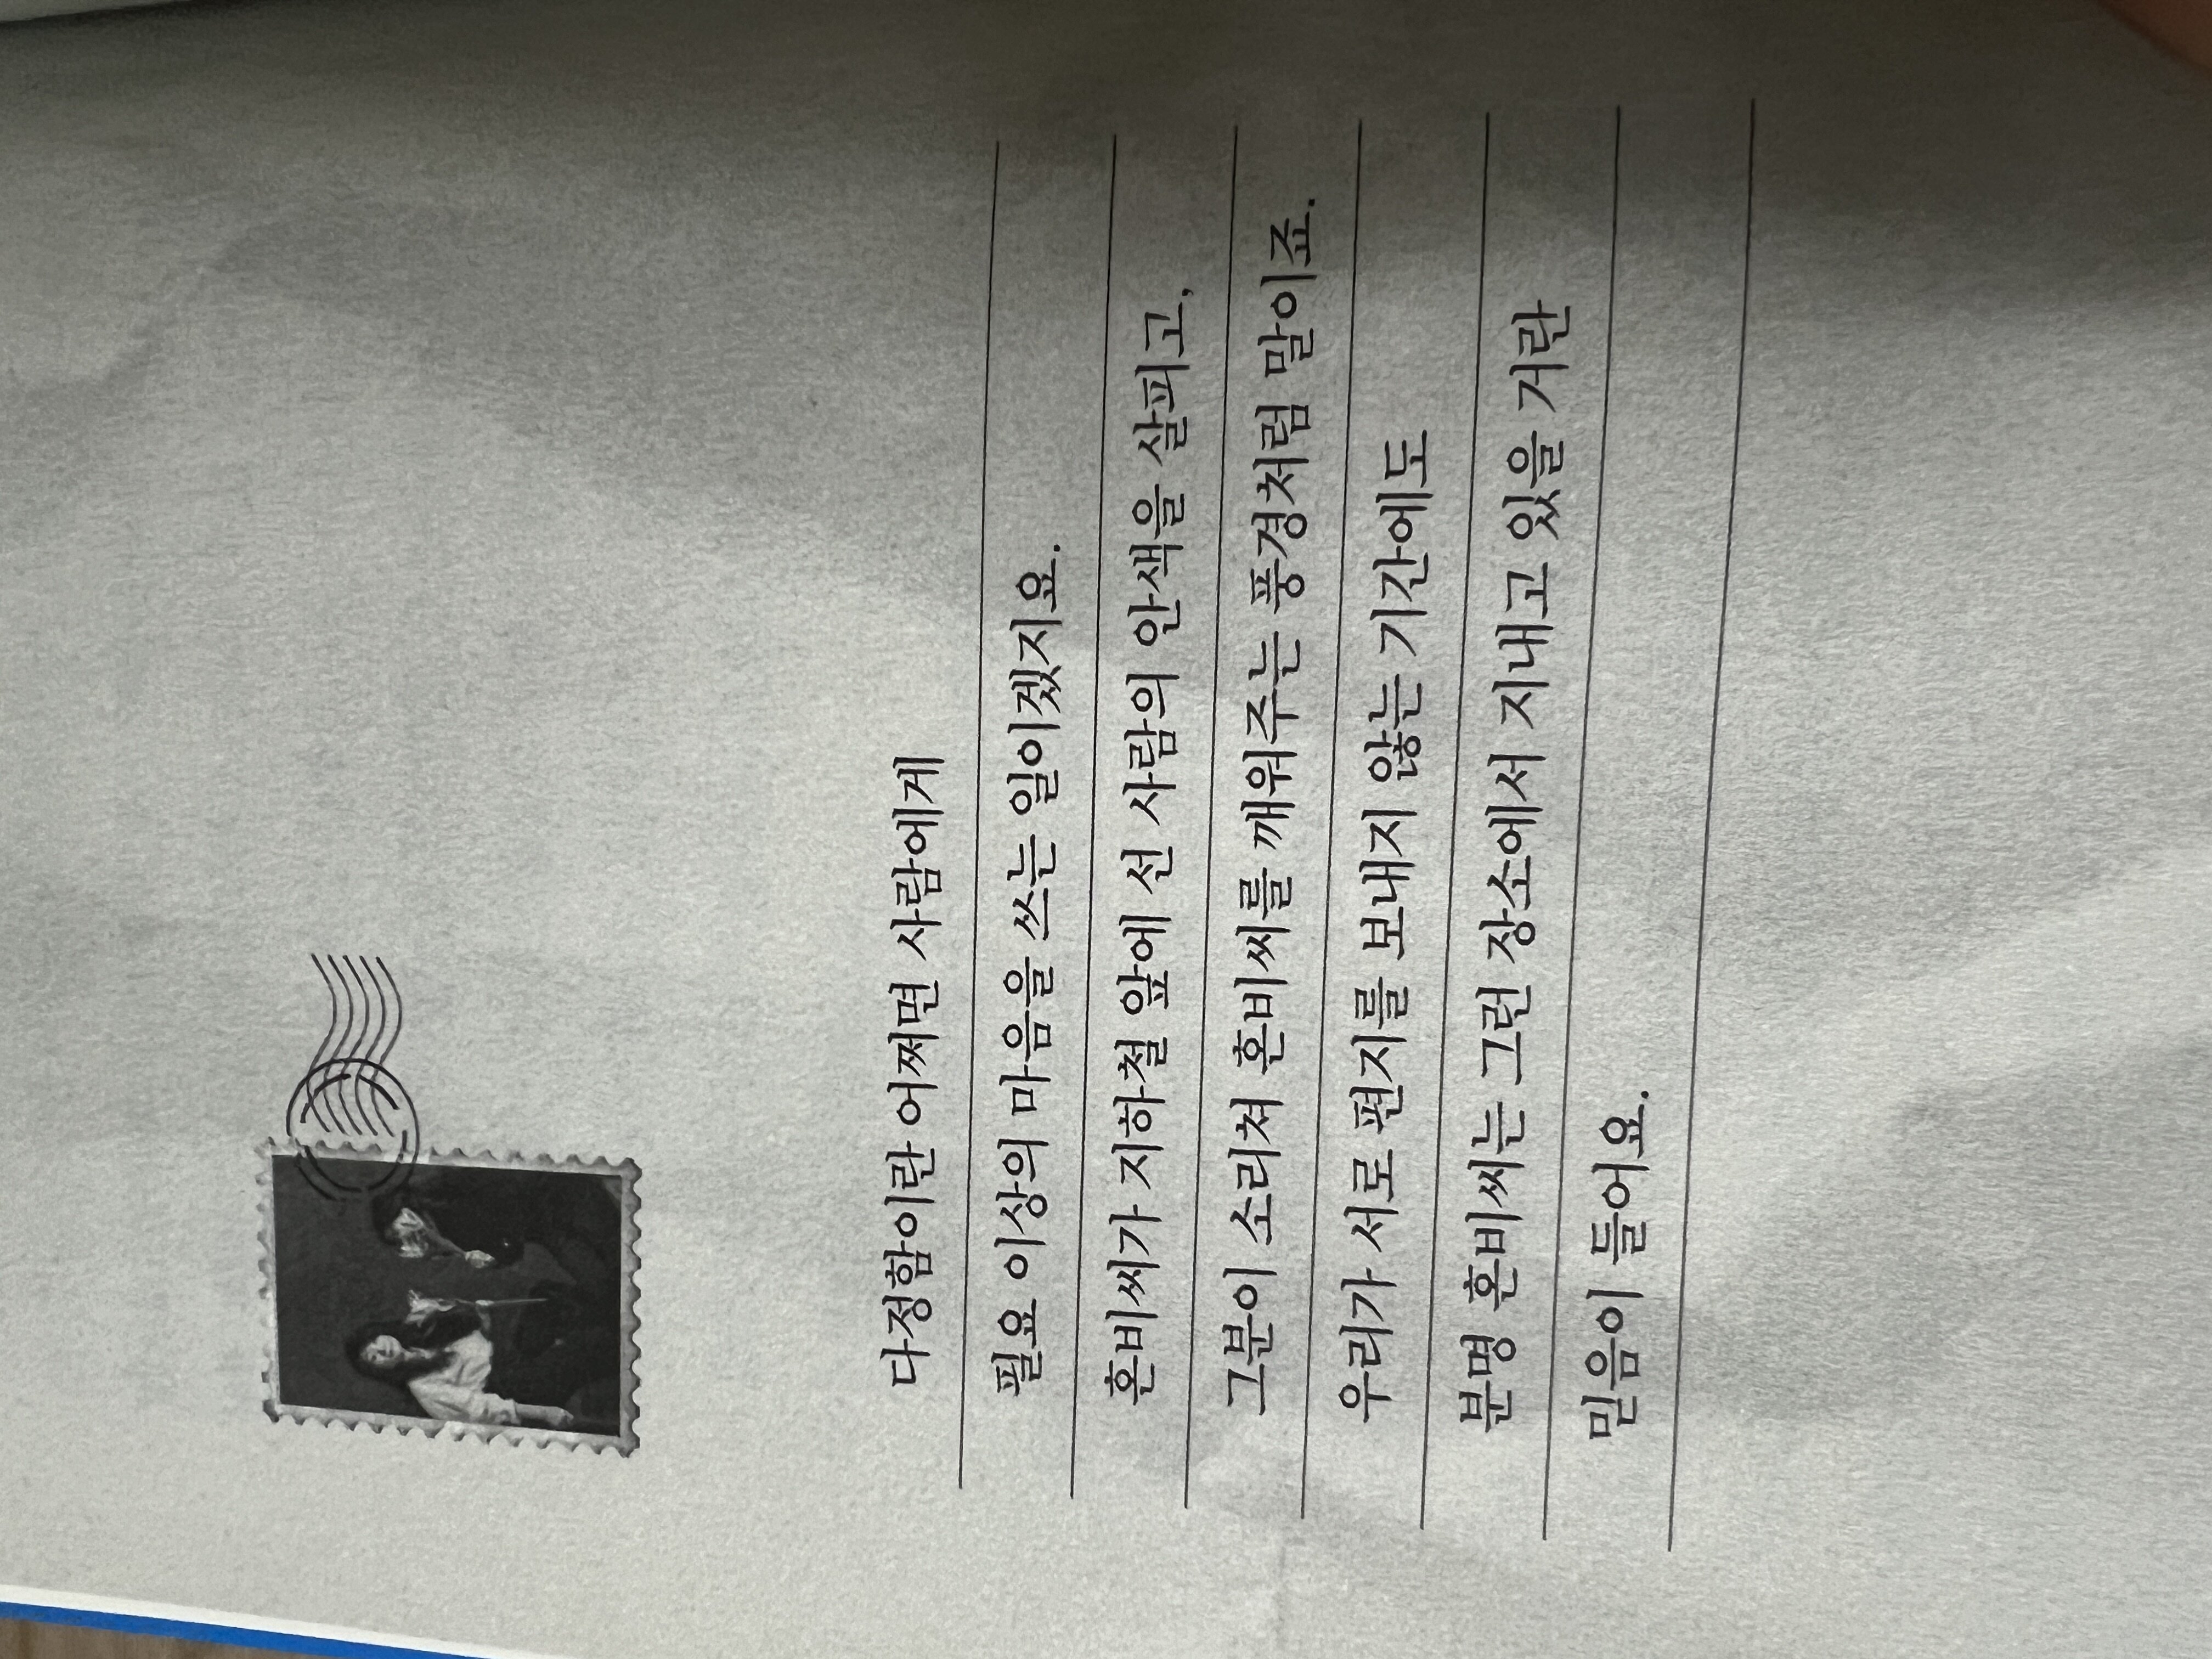 다정함이란 어쩌면 사람에게
필요 이상의 마음을 쓰는 일이겠지요.
혼비씨가 지하철 앞에 선 사람의 안색을 살피고,
그분이 소리쳐 혼비씨를 깨워주는 풍경처럼 말이죠.
우리가 서로 편지를 보내지 않는 기간에도
분명 혼비씨는 그런 장소에서 지내고 있을 거란
믿음이 들어요.